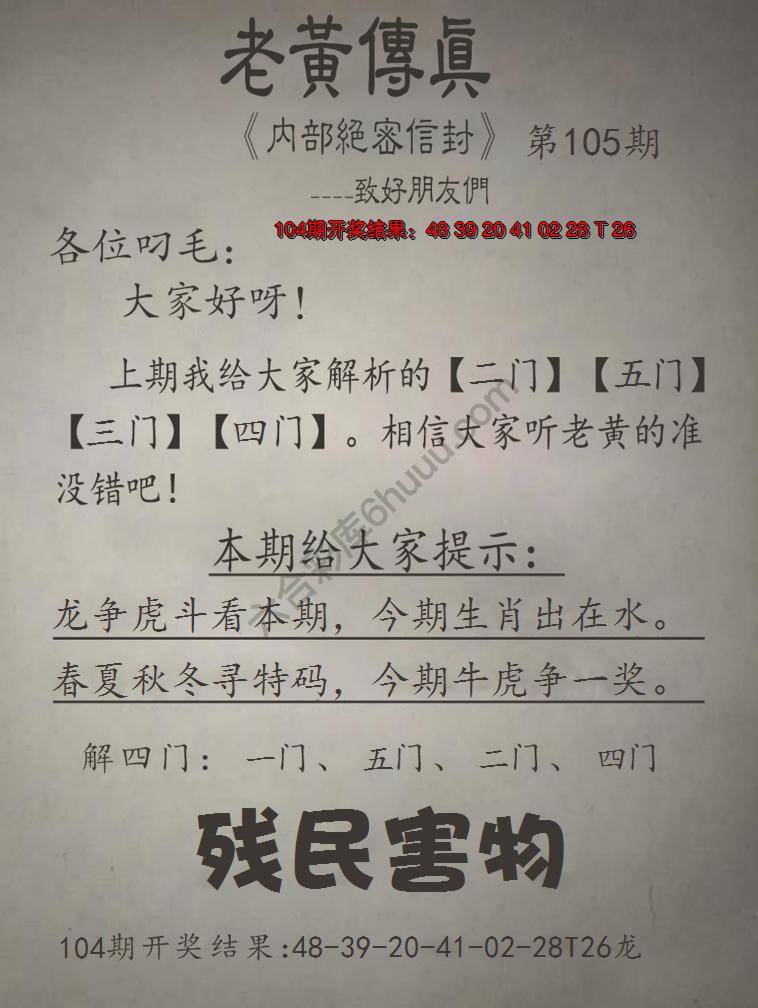 老黃傳眞
《内部絕密信封》 第105期
----致好朋友們
104期开奖结果：48 39 20 41 02 28 T 26
各位叼毛：
大家好呀！
上期我给大家解析的【二门】【五门】
【三门】【四门】。相信大家听老黄的准
没错吧！
六合彩库6huuu.com
本期给大家提示：
龙争虎斗看本期，今期生肖出在水。
春夏秋冬寻特码，今期牛虎争一奖。
解四门：一门、五门、二门、四门
残民害物
104期开奖结果:48-39-20-41-02-28T26龙